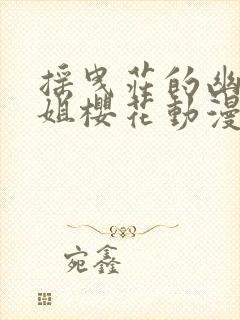 採曳莊的幽
姐櫻花動漫
宛鑫